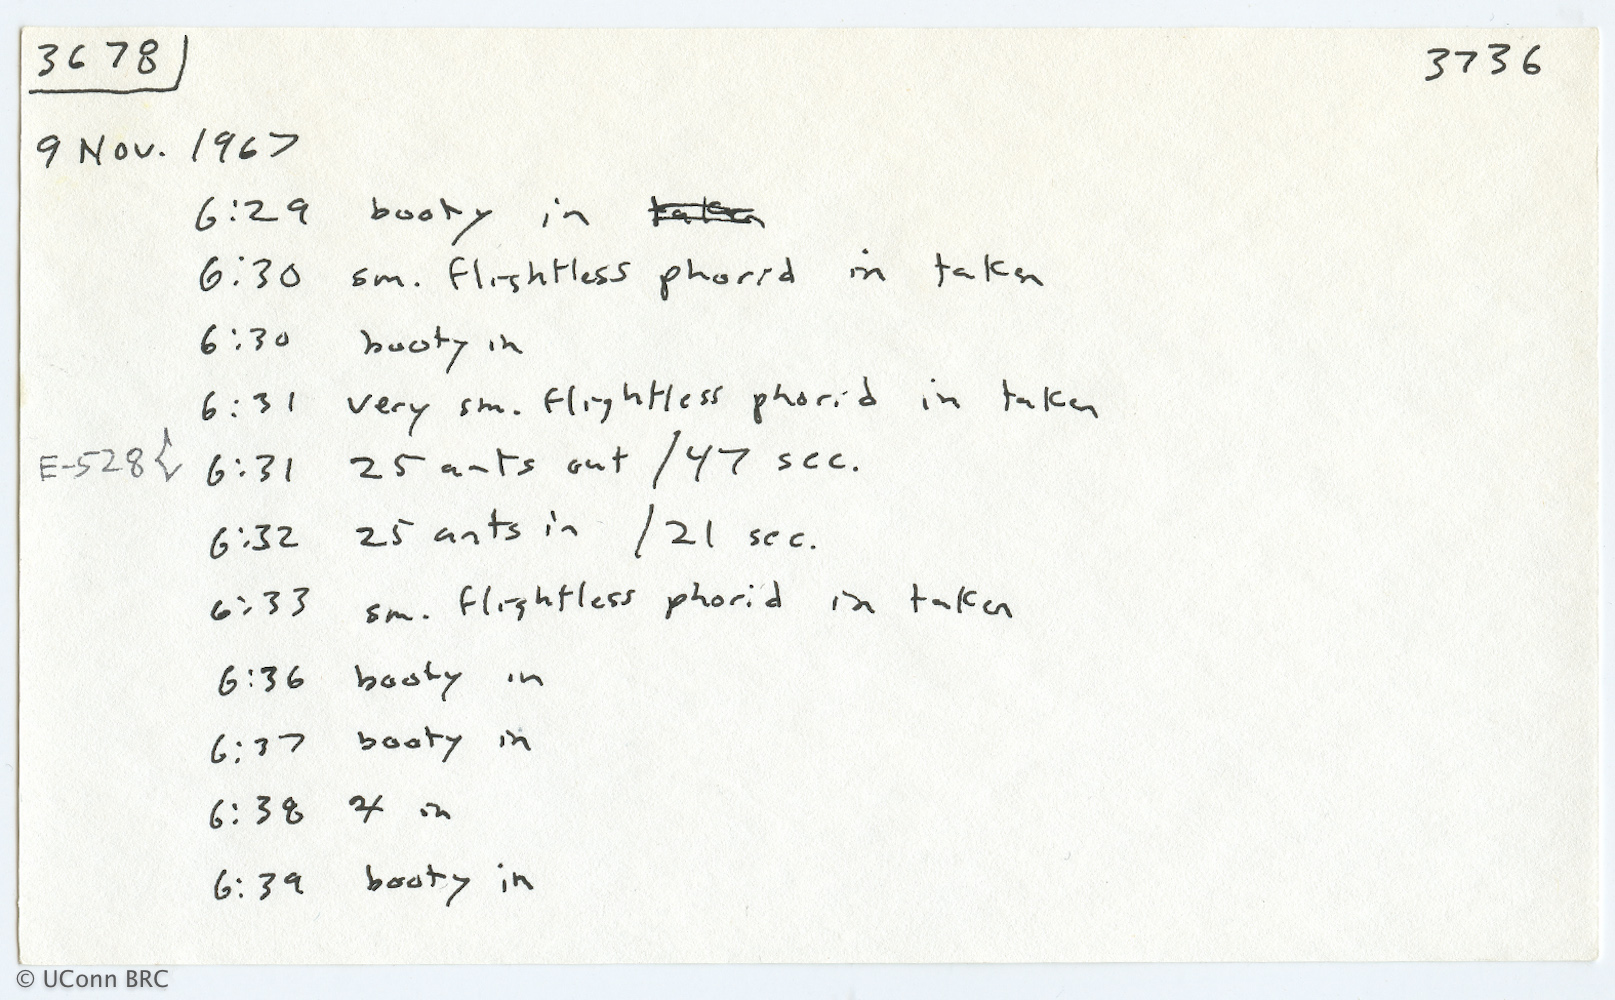 3678 3736
9 Nov. 1967
6:29 booty in taken
6:30 sm. flightless phorid in taken
6:30 booty in
6:31 very sm. flightless phorid in taken
E-528 { 6:31 25 ants out /47 sec.
6:32 25 ants in /21 sec.
6:33 sm. flightless phorid in taken
6:36 booty in
6:37 booty in
6:38 in
6:39 booty in
© UConn BRC